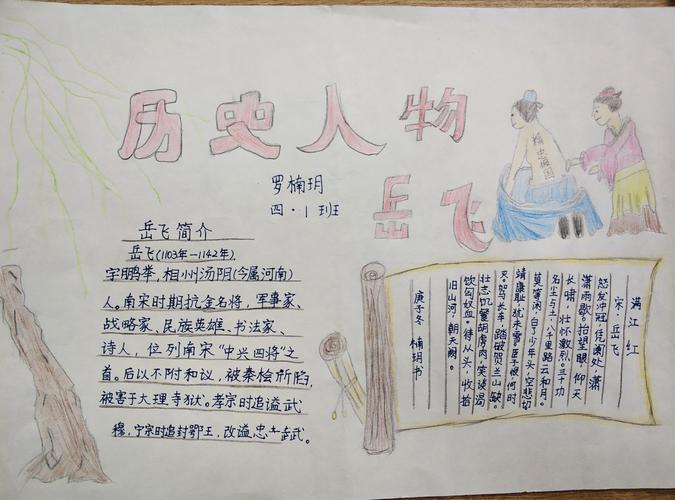 历史人物
岳飞
罗楠玥
四·1班
精忠报国
岳飞简介
岳飞(1103年-1142年),
字鹏举,相州汤阴(今属河南)
人。南宋时期抗金名将,军事家、
战略家、民族英雄、书法家、
诗人,位列南宋“中兴四将”之
首。后以不附和议,被秦桧所陷,
被害于大理寺狱。孝宗时追谥武
穆,宁宗时追封鄂王,改谥忠武。
满江红
宋·岳飞
怒发冲冠,凭阑处,潇
潇雨歇。抬望眼,仰天
长啸,壮怀激烈。三十功
名尘与土,八千里路云和月。
莫等闲,白了少年头,空悲切
靖康耻,犹未雪;臣子恨何时
灭。驾长车,踏破贺兰山缺。
壮志饥餐胡虏肉,笑谈渴
饮匈奴血。待从头,收拾
旧山河,朝天阙。
庚子冬 楠玥书